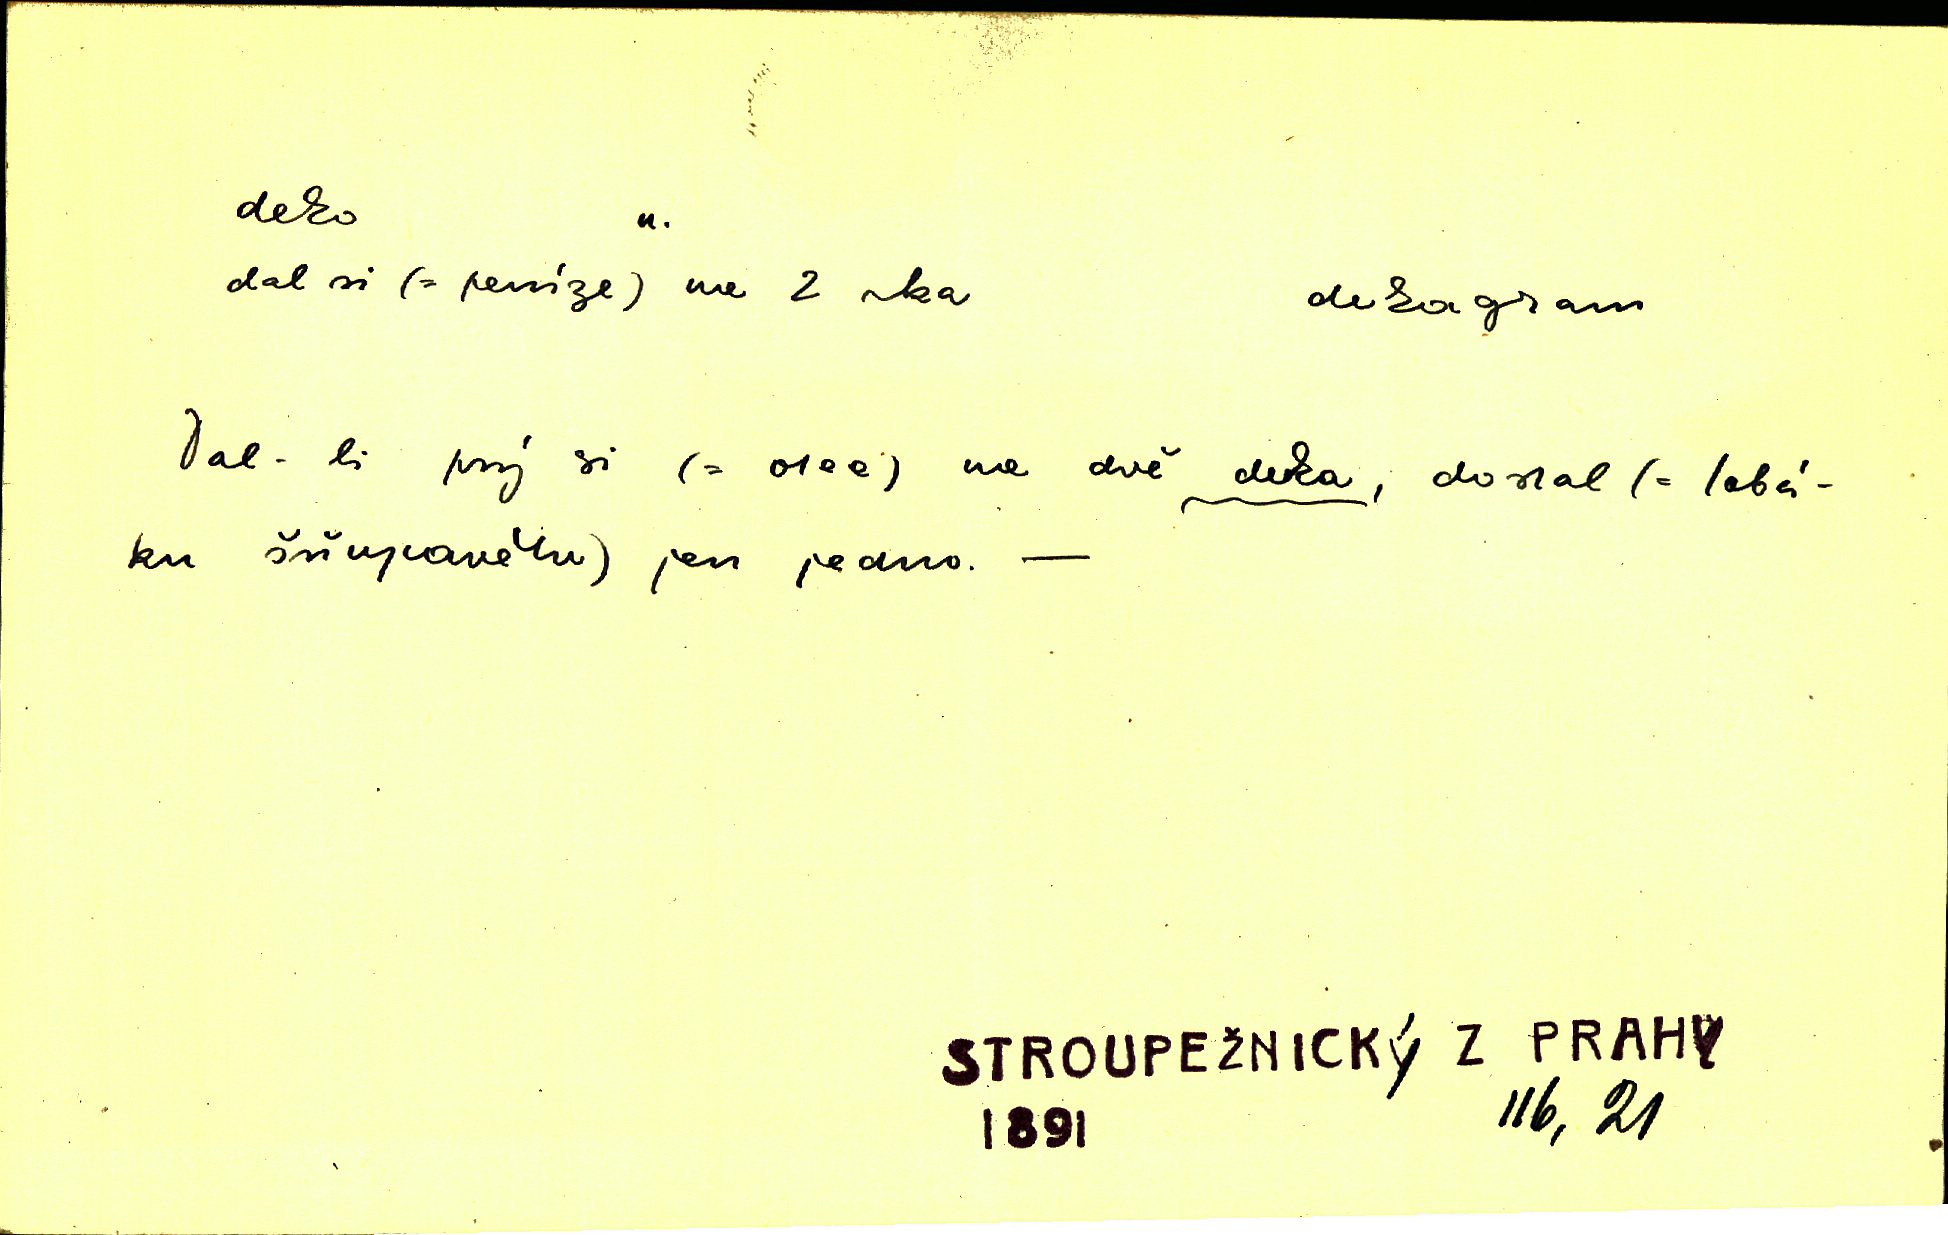 deko n.
dal si (= peníze) na 2 -ka dekagram
Dal-li prý si (= otec) na dvě deka, dostal (= tabá-
ku šňupavého) jen jedno. —
STROUPEŽNICKÝ Z PRAHY
1891 116, 21